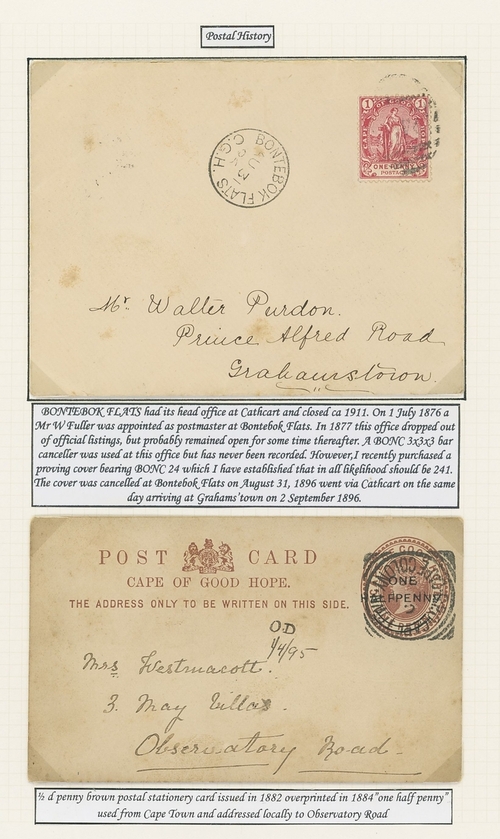 Postal History
1 OF GOOD 1
CAPE
HOPE
ONE PENNY
POSTAGE
BONTEBOK FLATS
C.G.H.
AU 31
Mr. Walter Purdon.
Prince Alfred Road
Grahamstown.
BONTEBOK FLATS had its head office at Cathcart and closed ca 1911. On 1 July 1876 a
Mr W Fuller was appointed as postmaster at Bontebok Flats. In 1877 this office dropped out
of official listings, but probably remained open for some time thereafter. A BONC 3x3x3 bar
canceller was used at this office but has never been recorded. However,I recently purchased a
proving cover bearing BONC 24 which I have established that in all likelihood should be 241.
The cover was cancelled at Bontebok Flats on August 31, 1896 went via Cathcart on the same
day arriving at Grahams'town on 2 September 1896.
POST CARD
CAPE OF GOOD HOPE.
THE ADDRESS ONLY TO BE WRITTEN ON THIS SIDE.
ONE
HALFPENNY
OD
1/4/95
Mrs Westmacott.
3. May Villas.
Observatory Road.
½ d penny brown postal stationery card issued in 1882 overprinted in 1884"one half penny"
used from Cape Town and addressed locally to Observatory Road